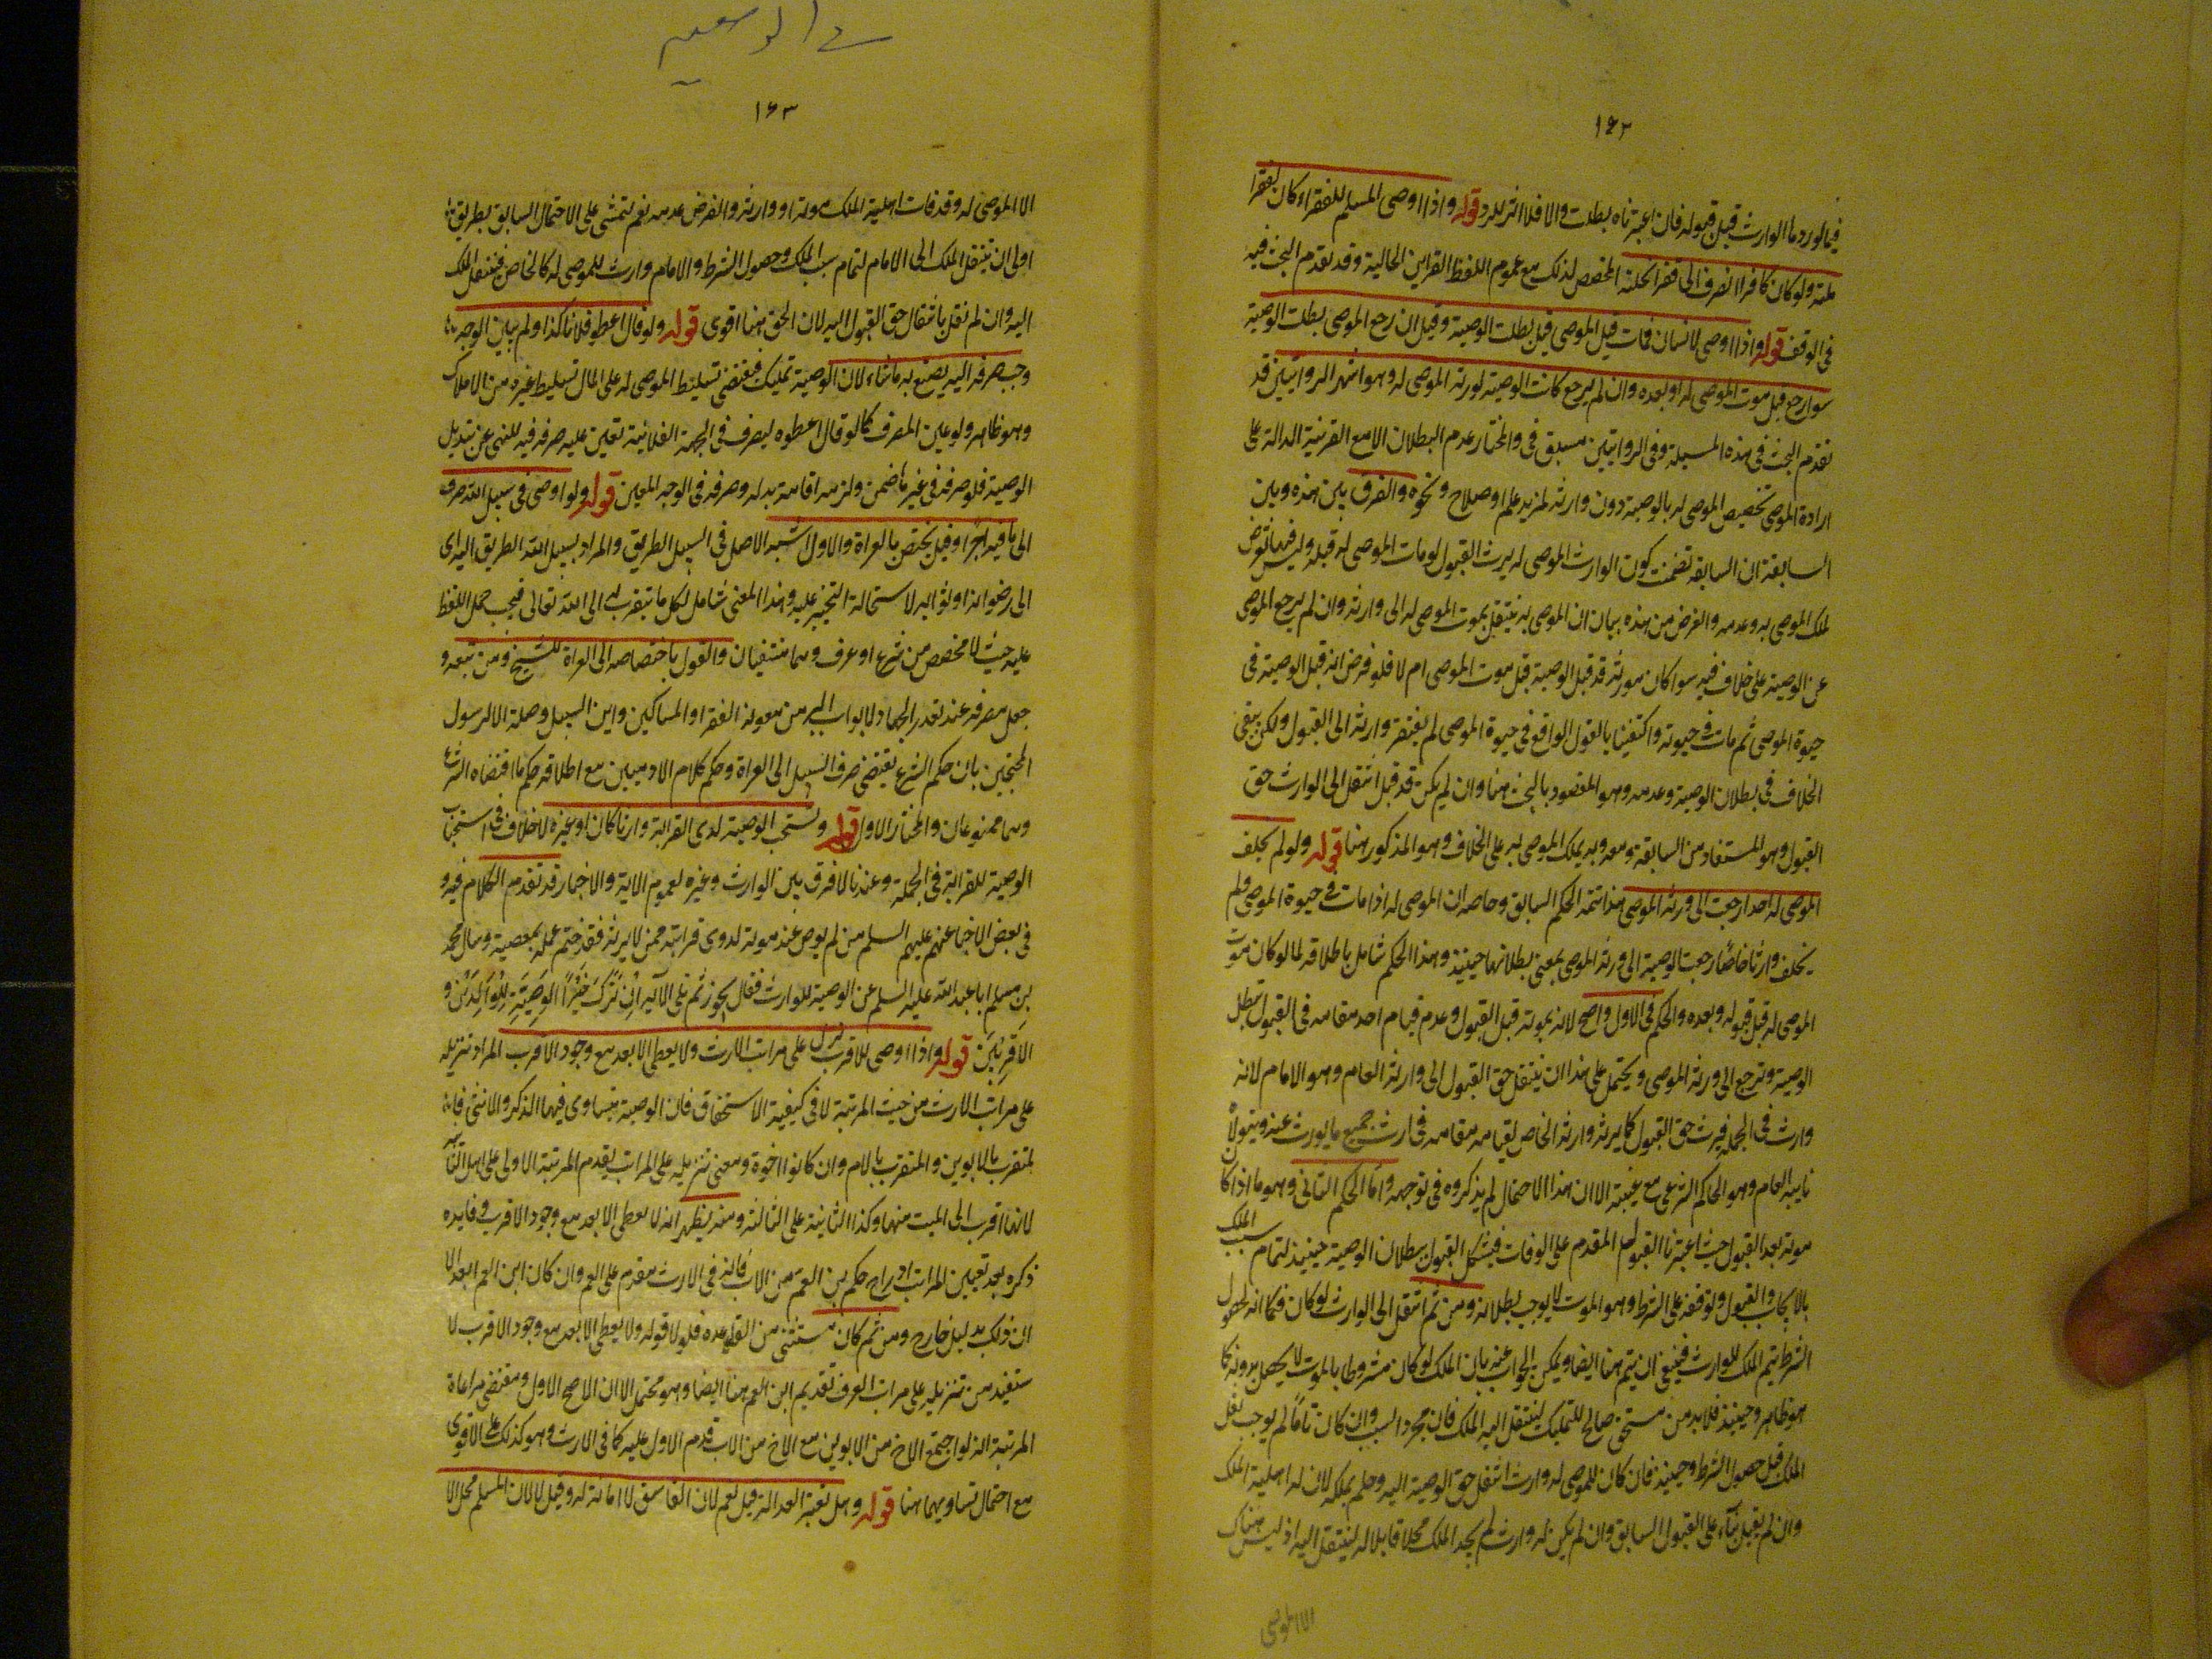 ١٦٢
فيما لو رد ما الوارث قبل قبوله فان اعتبرناه بطلت والا فلا اثر للرد قوله واذا اوصى المسلم للفقراء كان لفقراء
ملته ولو كان كافرا انصرف الى فقراء نحلته المخصص لذلك مع عموم اللفظ القراين الحالية وقد تقدم البحث فيه
فى الوقف قوله واذا اوصى لانسان فمات قبل الموصى قيل بطلت الوصية وقيل ان رجع الموصى بطلت الوصية
سوا رجع قبل موت الموصى له او بعده وان لم يرجع كانت الوصية لورثة الموصى له وهو اشهر الروايتين قد
تقدم البحث فى هذه المسيلة وفى الروايتين مسبق فى والمختار عدم البطلان الا مع القرينة الدالة على
ارادة الموصى تخصيص الموصى له بالوصية دون وارثه لمزيد علم او صلاح ونحوه والفرق بين هذه وبين
السابقة ان السابقة تضمنت كون الوارث الموصى له يرث القبول لو مات الموصى له قبله وليس فيها تعرض
لملك الموصى به وعدمه والغرض من هذه بيان ان الموصى به ينتقل بموت الموصى له الى وارثه وان لم يرجع الموصى
عن الوصية على خلاف فيه سوا كان مورثه قد قبل الوصية قبل موت الموصى ام لا فلو فرض انه قبل الوصية فى
حيوة الموصى ثم مات فى حيوته واكتفينا بالقبول الواقع فى حيوة الموصى لم يفتقر وارثه الى القبول ولكن يبقى
الخلاف فى بطلان الوصية وعدمه وهو المقصود بالبحث هنا وان لم يكن قد قبل انتقل الى الوارث حق
القبول وهو المستفاد من السابقة ومعه وبه يملك الموصى به على الخلاف وهو المذكور هنا قوله ولو لم يخلف
الموصى له احدا رجعت الى ورثة الموصى هذا تتمة الحكم السابق وحاصله ان الموصى له اذا مات فى حيوة الموصى ولم
يخلف وارثا خاصا رجعت الوصية الى ورثة الموصى بمعنى بطلانها حينئذ وهذا الحكم شامل باطلاقه لما لو كان موت
الموصى له قبل قبوله وبعده والحكم فى الاول واضح لانه بموته قبل القبول وعدم قيام احد مقامه فى القبول تبطل
الوصية وترجع الى ورثة الموصى ويحتمل على هذا ان ينتقل حق القبول الى وارثه العام وهو الامام لانه
وارث فى الجملة فيرث حق القبول كما يرثه وارثه الخاص لقيامه مقامه فى ارث جميع ما يورث عنه ويتولا
نايبه العام وهو الحاكم الشرعى مع غيبته الا ان هذا الاحتمال لم يذكروه فى توجيهه واما الحكم الثانى وهو ما اذا كا
موته بعد القبول حيث اعتبرنا القبول المقدم على الوفات فيشكل القول ببطلان الوصية حينئذ لتمام سبب الملك
بالايجاب والقبول وتوقفه على الشرط وهو الموت لا يوجب بطلانه ومن ثم انتقل الى الوارث لو كان فكما انه لحصول
الشرط يتم الملك للوارث فينبغى ان يتم هنا ايضا ويمكن الجواب عنه بان الملك لو كان مشروطا بالموت لا يحصل بدونه كما
هو ظاهر وحينئذ فلا بد من مستحق صالح للتملك لينتقل اليه الملك فان مجرد السبب وان كان تاما لم يوجب نقل
الملك قبل حصول الشرط وحينئذ فان كان للموصى له وارث انتقل حق الوصية اليه وحكم بملكه لان له اهلية الملك
وان لم يقبل بناء على القبول السابق وان لم يكن له وارث لم يجد الملك محلا قابلا له لينتقل اليه اذ ليس هناك
الا الموصى
١٦٣
الا الموصى له وقد فات اهلية الملك بموته او وارثه والفرض عدمه نعم يتمشى على الاحتمال السابق بطريق
اولى ان ينتقل الملك الى الامام لتمام سبب الملك وحصول الشرط والامام وارث للموصى له كالخاص فينتقل الملك
اليه وان لم نقل بانتقال حق القبول اليه لان الحق هنا اقوى قوله ولو قال اعطوا فلانا كذا ولم يبين الوجه
وجب صرفه اليه يصنع به ما شاء لان الوصية تمليك فيقتضى تسليط الموصى له على المال تسليط غيره من الاملاك
وهو ظاهر ولو عين المصرف كما لو قال اعطوه ليصرف فى الجهة الفلانية تعين عليه صرفه فيه للنهى عن تبديل
الوصية فلو صرفه فى غيرها ضمن ولزمه اقامة بدله وصرفه فى الوجه المعين قوله ولو اوصى فى سبيل الله صرف
الى ما فيه اجرا وقيل يختص بالغزاة والاول اشبه الاصل فى السبيل الطريق والمراد بسبيل الله الطريق اليه اى
الى رضوانه او ثوابه لاستحالة التحيز عليه وهذا المعنى شامل لكل ما يتقرب به الى الله تعالى فيجب حمل اللفظ
عليه حيث لا مخصص من شرع او عرف وهما منتفيان والقول باختصاصه الى الغزاة للشيخ ومن تبعه و
جعل مصرفه عند تعذر الجهاد لابواب البر من معونة الفقرا والمساكين وابن السبيل وصلة آل الرسول
المحتجين بان حكم الشرع يقتضى صرف السبيل الى الغزاة وحكم كلام الادميين مع اطلاقه حكم ما اقتضاه الشرع
وهما ممنوعان والمختار الاول قوله وتستحب الوصية لذى القرابة وارثا كان او غيره لا خلاف فى استحباب
الوصية للقرابة فى الجملة وعندنا لا فرق بين الوارث وغيره لعموم الاية والاخبار قد تقدم الكلام فيه و
فى بعض الاخبا عنهم عليهم السلم من لم يوص عند موته لذوى قرابته ممن لا يرثه فقد ختم عمله بمعصية وسال محمد
بن مسلم ابا عبد الله عليه السلم عن الوصية للوارث فقال يجوز ثم تلى الآية اِن تَرَكَ خَيْرًا الوَصِيَّةِ لِلوَالِدَيْن و
الاَقْرَبِينَ قوله واذا اوصى للاقرب نزل على مراتب الارث ولا يعطى الابعد مع وجود الاقرب المراد تنزيله
على مراتب الارث من حيث المرتبة لا فى كيفية الاستحقاق فان الوصية يتساوى فيها الذكر والانثى
لمتقرب بالابوين والمتقرب بالام وان كانوا اخوة ومعنى تنزيله على المراتب تقدم المرتبة الاولى على اهل الثانية
لانها اقرب الى الميت منها وكذا الثانية على الثالثة ومنه يظهر انه لا يعطى الابعد مع وجود الاقرب وفايدة
ذكره بعد تعيين المراتب ادراج حكم بن العم من الاب فانه فى الارث مقدم على العم وان كان ابن العم ابعد الا
ان ذلك بدليل خارج ومن ثم كان مستثنى من القاعدة فلولا قوله ولا يعطى الابعد مع وجود الاقرب لا
ستفيد من تنزيله على مراتب العرف تقديم ابن العم هنا ايضا وهو محتمل الا ان الاصح الاول ومقتضى مراعاة
المرتبة انه لو اجتمع الاخ من الابوين مع الاخ من الاب قدم الاول عليه كما فى الارث وهو كذلك على الاقوى
مع احتمال تساويهما هنا قوله وهل تعتبر العدالة قيل نعم لان الفاسق لا امانة له وقيل لا لان المسلم محل الا